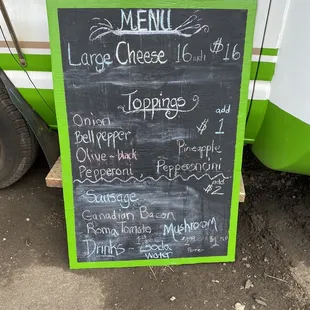 MENU
Large Cheese 16 inch $16
Toppings
add
Onion $1
Bell pepper
Olive - black Pineapple
Pepperoni Pepperoncini
add
Sausage $2
Canadian Bacon
Roma Tomato Mushroom
Drinks - Soda
Water